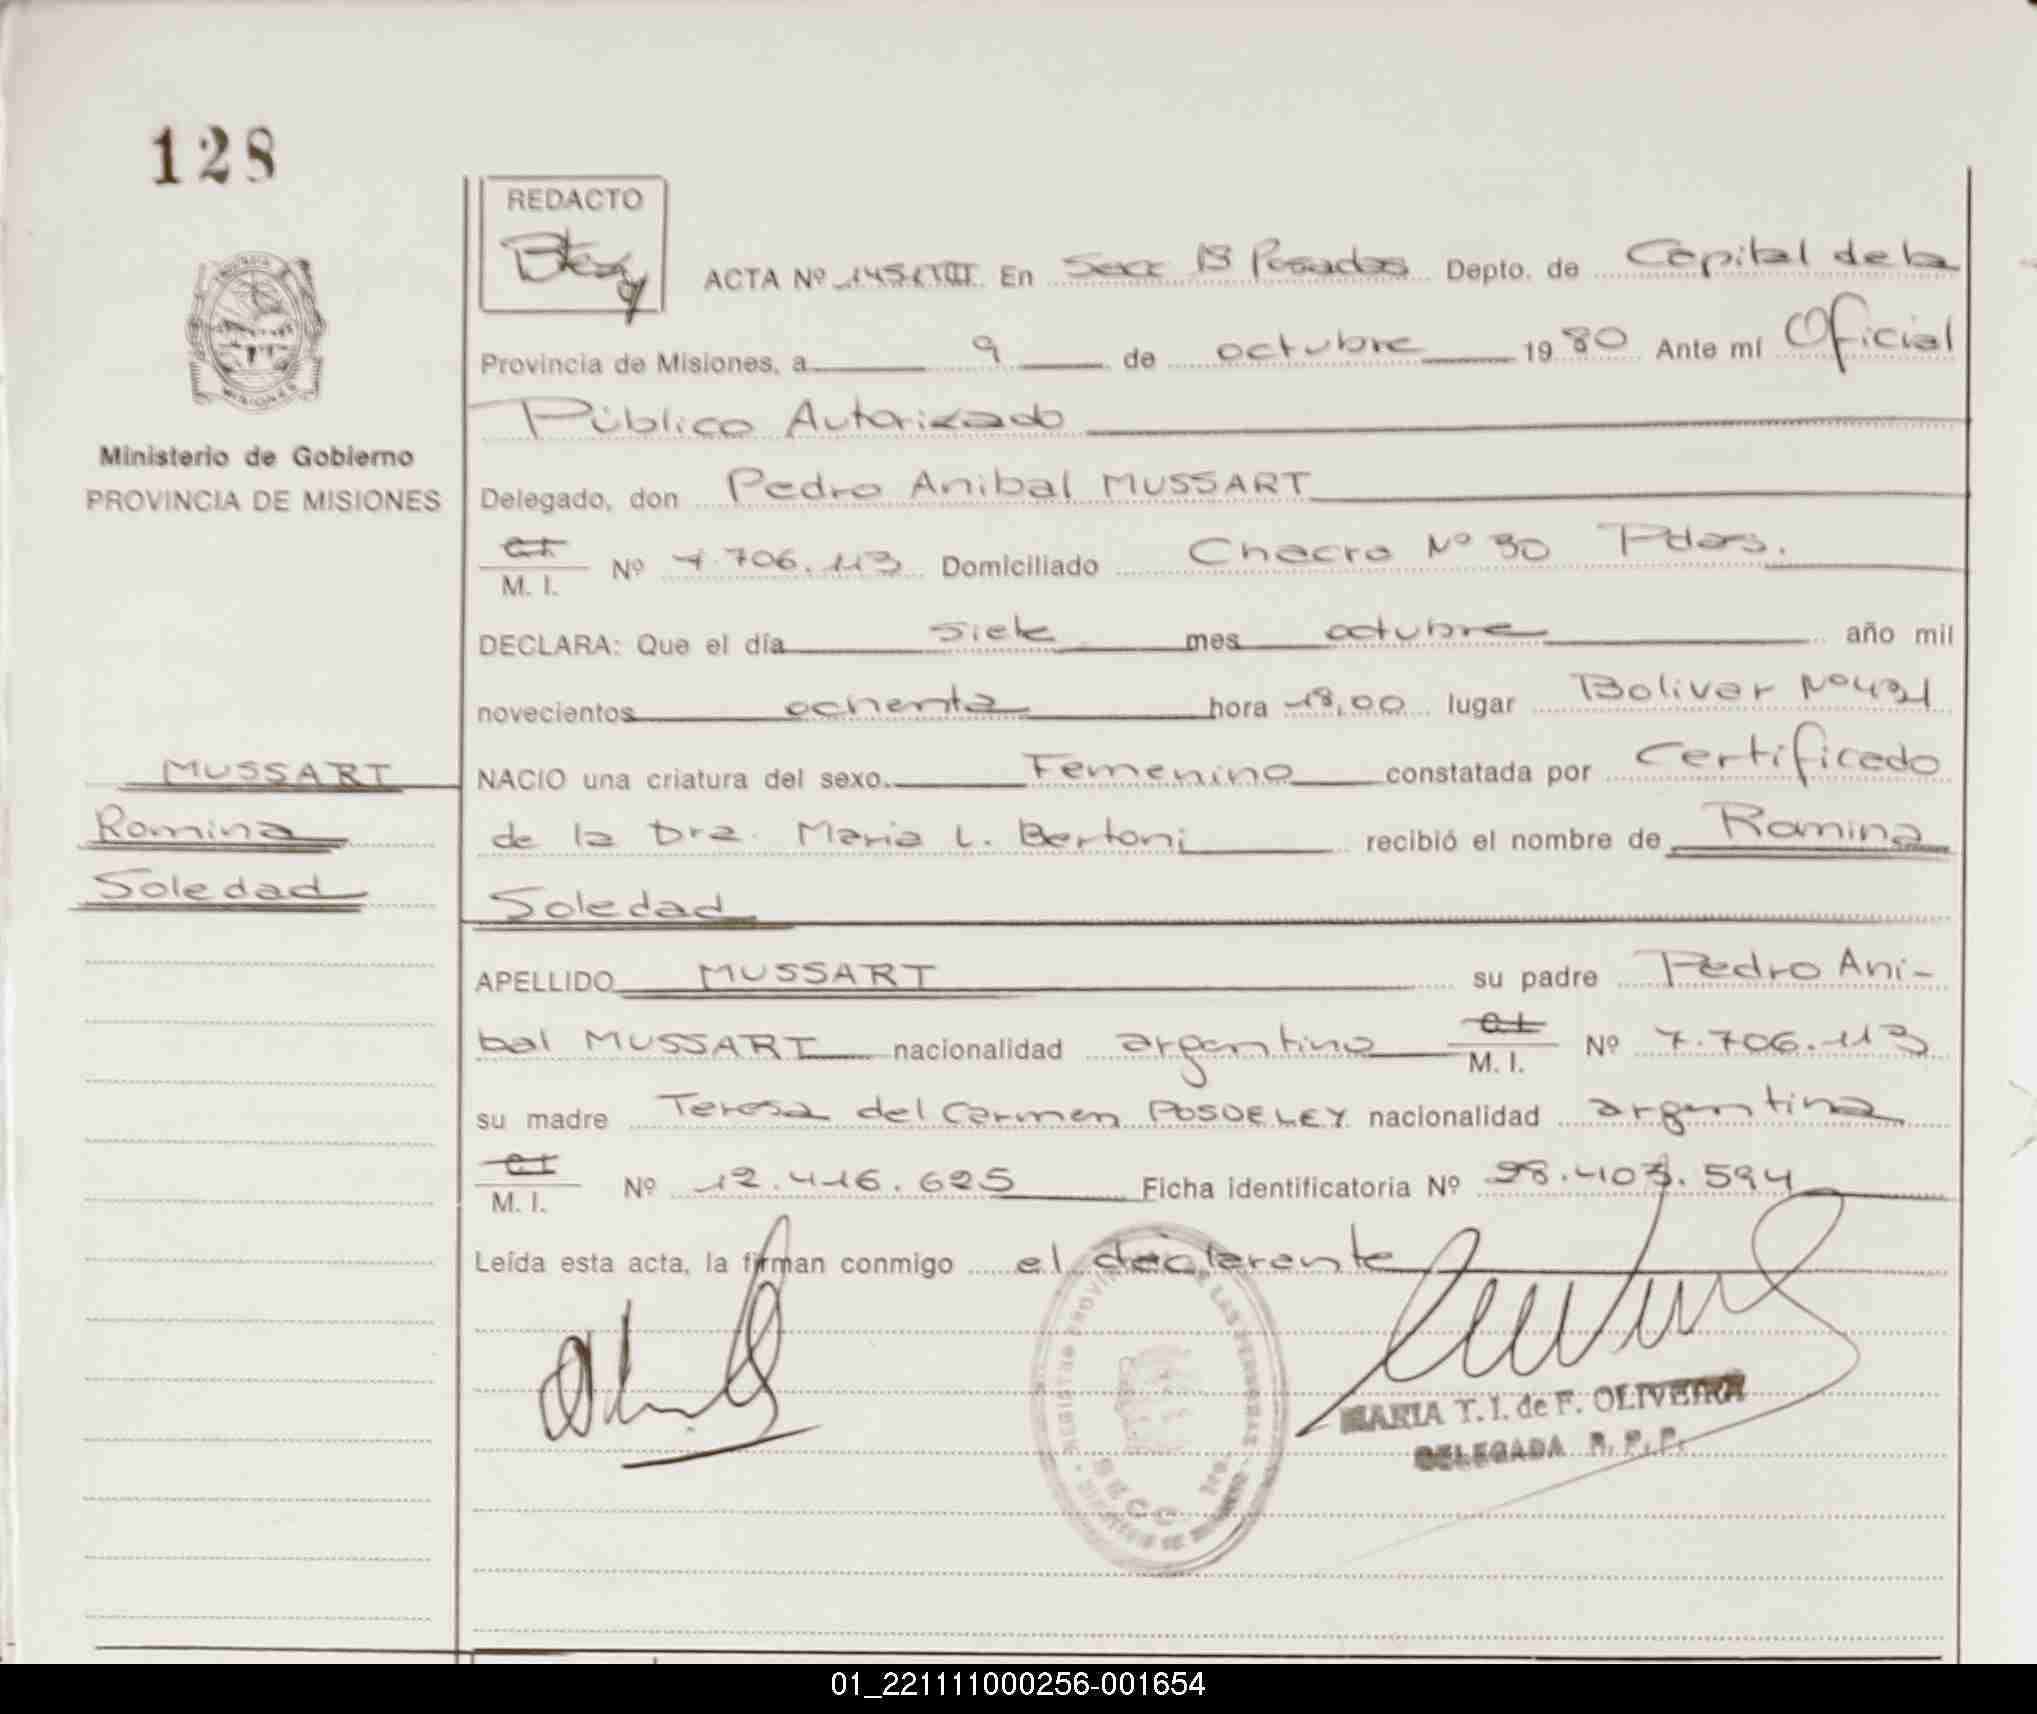 128
REDACTO
ACTA Nº 1451 VIII En Secc 1ª Posadas Depto. de Capital de la
Provincia de Misiones, a 9 de octubre 1980 Ante mí Oficial
Público Autorizado
Ministerio de Gobierno
PROVINCIA DE MISIONES
Delegado, don Pedro Anibal MUSSART
C.I.
M. I. Nº 7.706.113 Domiciliado Chacra Nº 30 Pdas.
DECLARA: Que el día siete mes octubre año mil
novecientos ochenta hora 18,00 lugar Bolivar Nº 421
MUSSART
Romina
Soledad
NACIO una criatura del sexo Femenino constatada por Certificado
de la Dra. Maria L. Bertoni recibió el nombre de Romina
Soledad
APELLIDO MUSSART su padre Pedro Ani-
bal MUSSART nacionalidad argentino C.I. M. I. Nº 7.706.113
su madre Teresa del Carmen POSDELEY nacionalidad argentina
C.I.
M. I. Nº 12.416.625 Ficha identificatoria Nº 28.403.594
Leída esta acta, la firman conmigo el declarante
REGISTRO PROVINCIAL DE LAS PERSONAS
SECC
MARIA T. I. de F. OLIVEIRA
DELEGADA R. P. P.
01_221111000256-001654